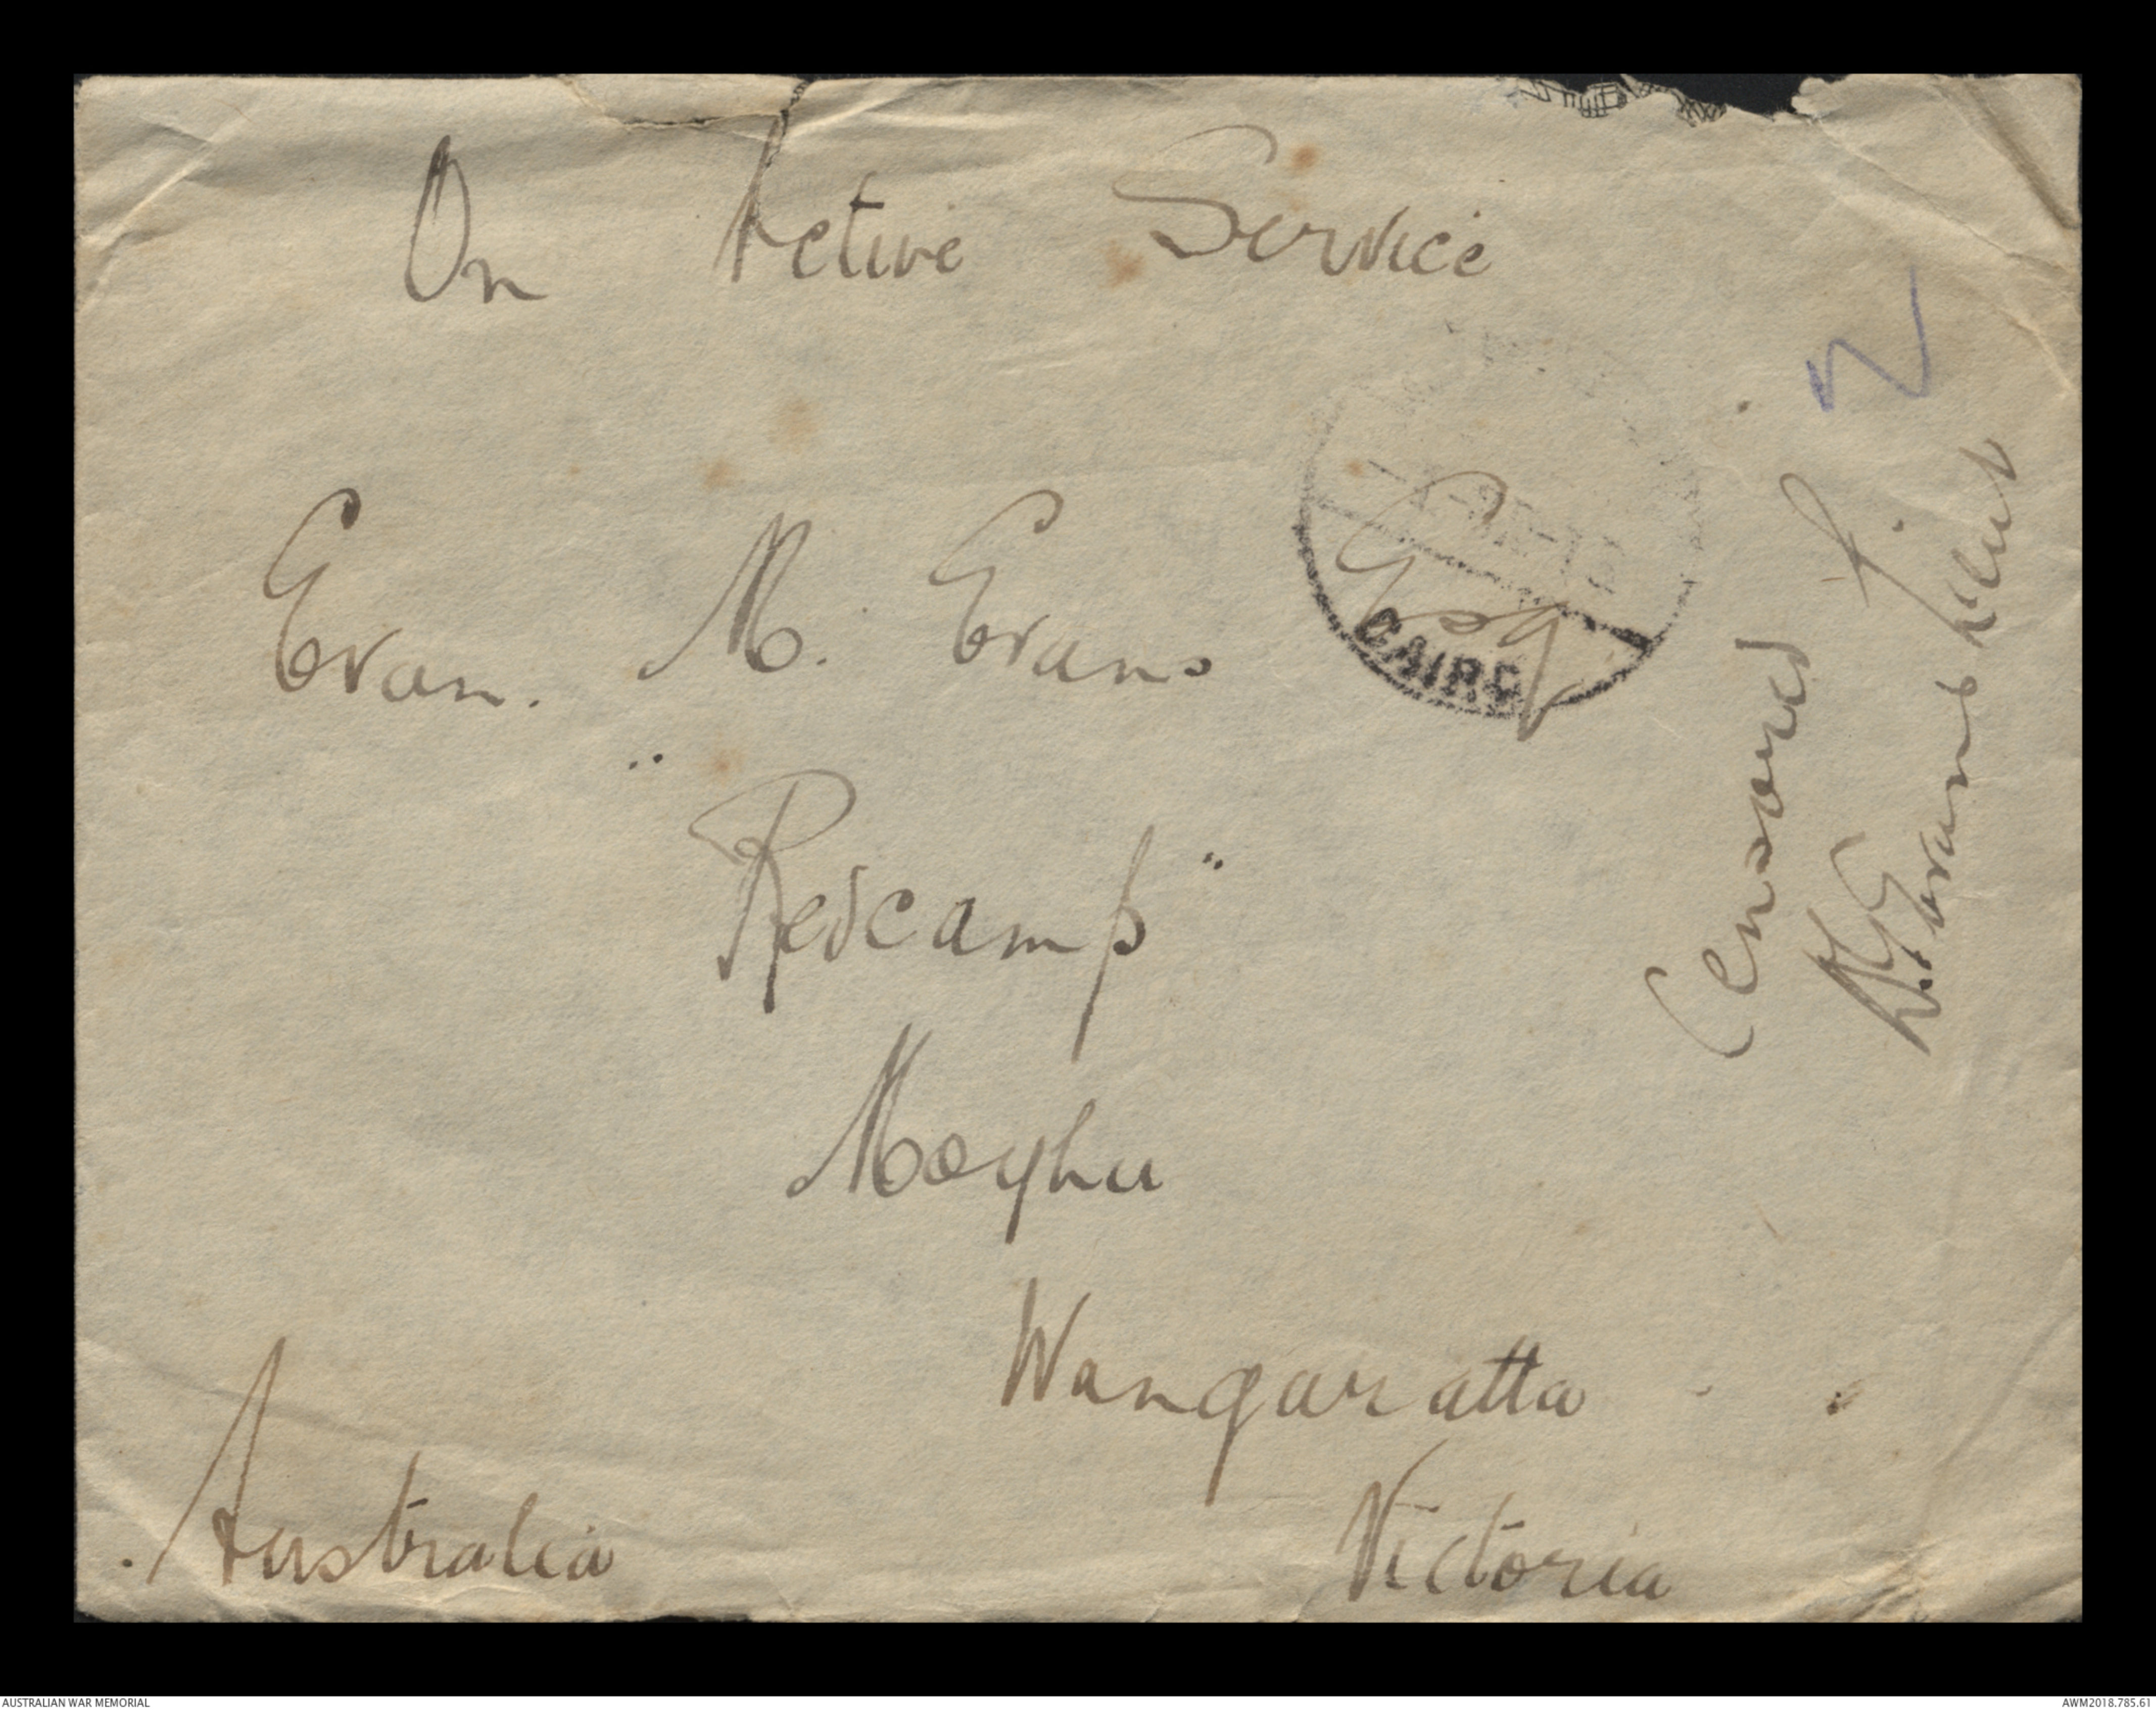 On Active Service
Evan. M. Evans Esq
"Redcamp"
Moyhu
Wangaratta
Victoria
Australia
Censored
Evans Lieut
CAIRO
AUSTRALIAN WAR MEMORIAL
AWM2018.785.61